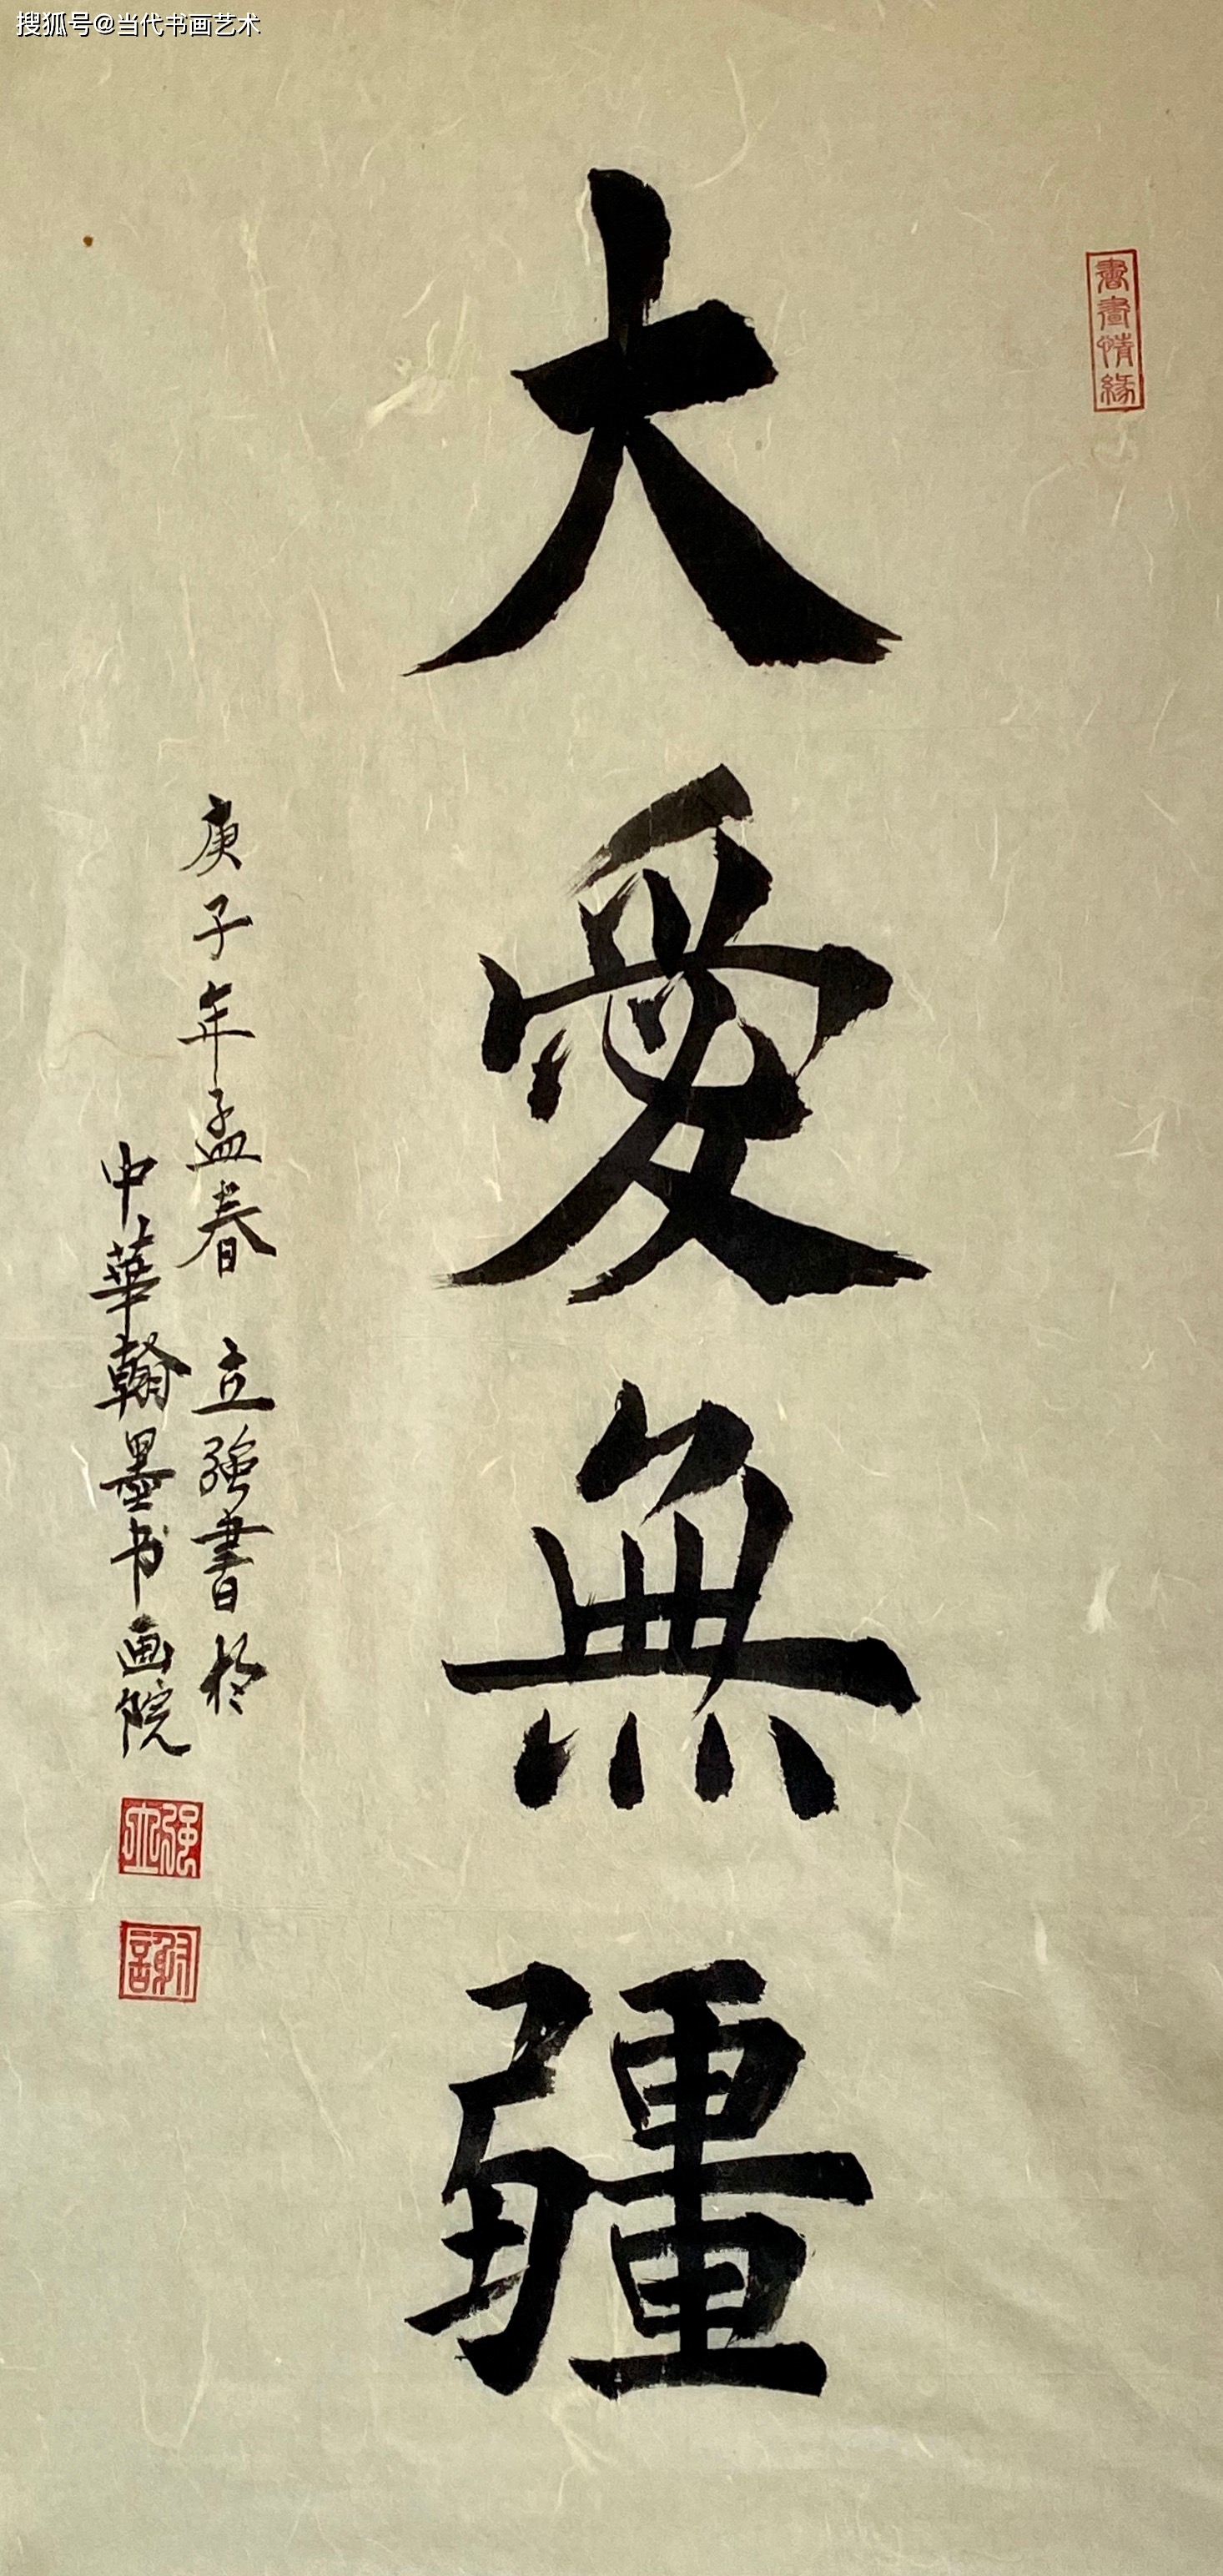 搜狐号@当代书画艺术
書畫情緣
大愛無疆
庚子年孟春 立強書於
中華翰墨书画院
立强
謝